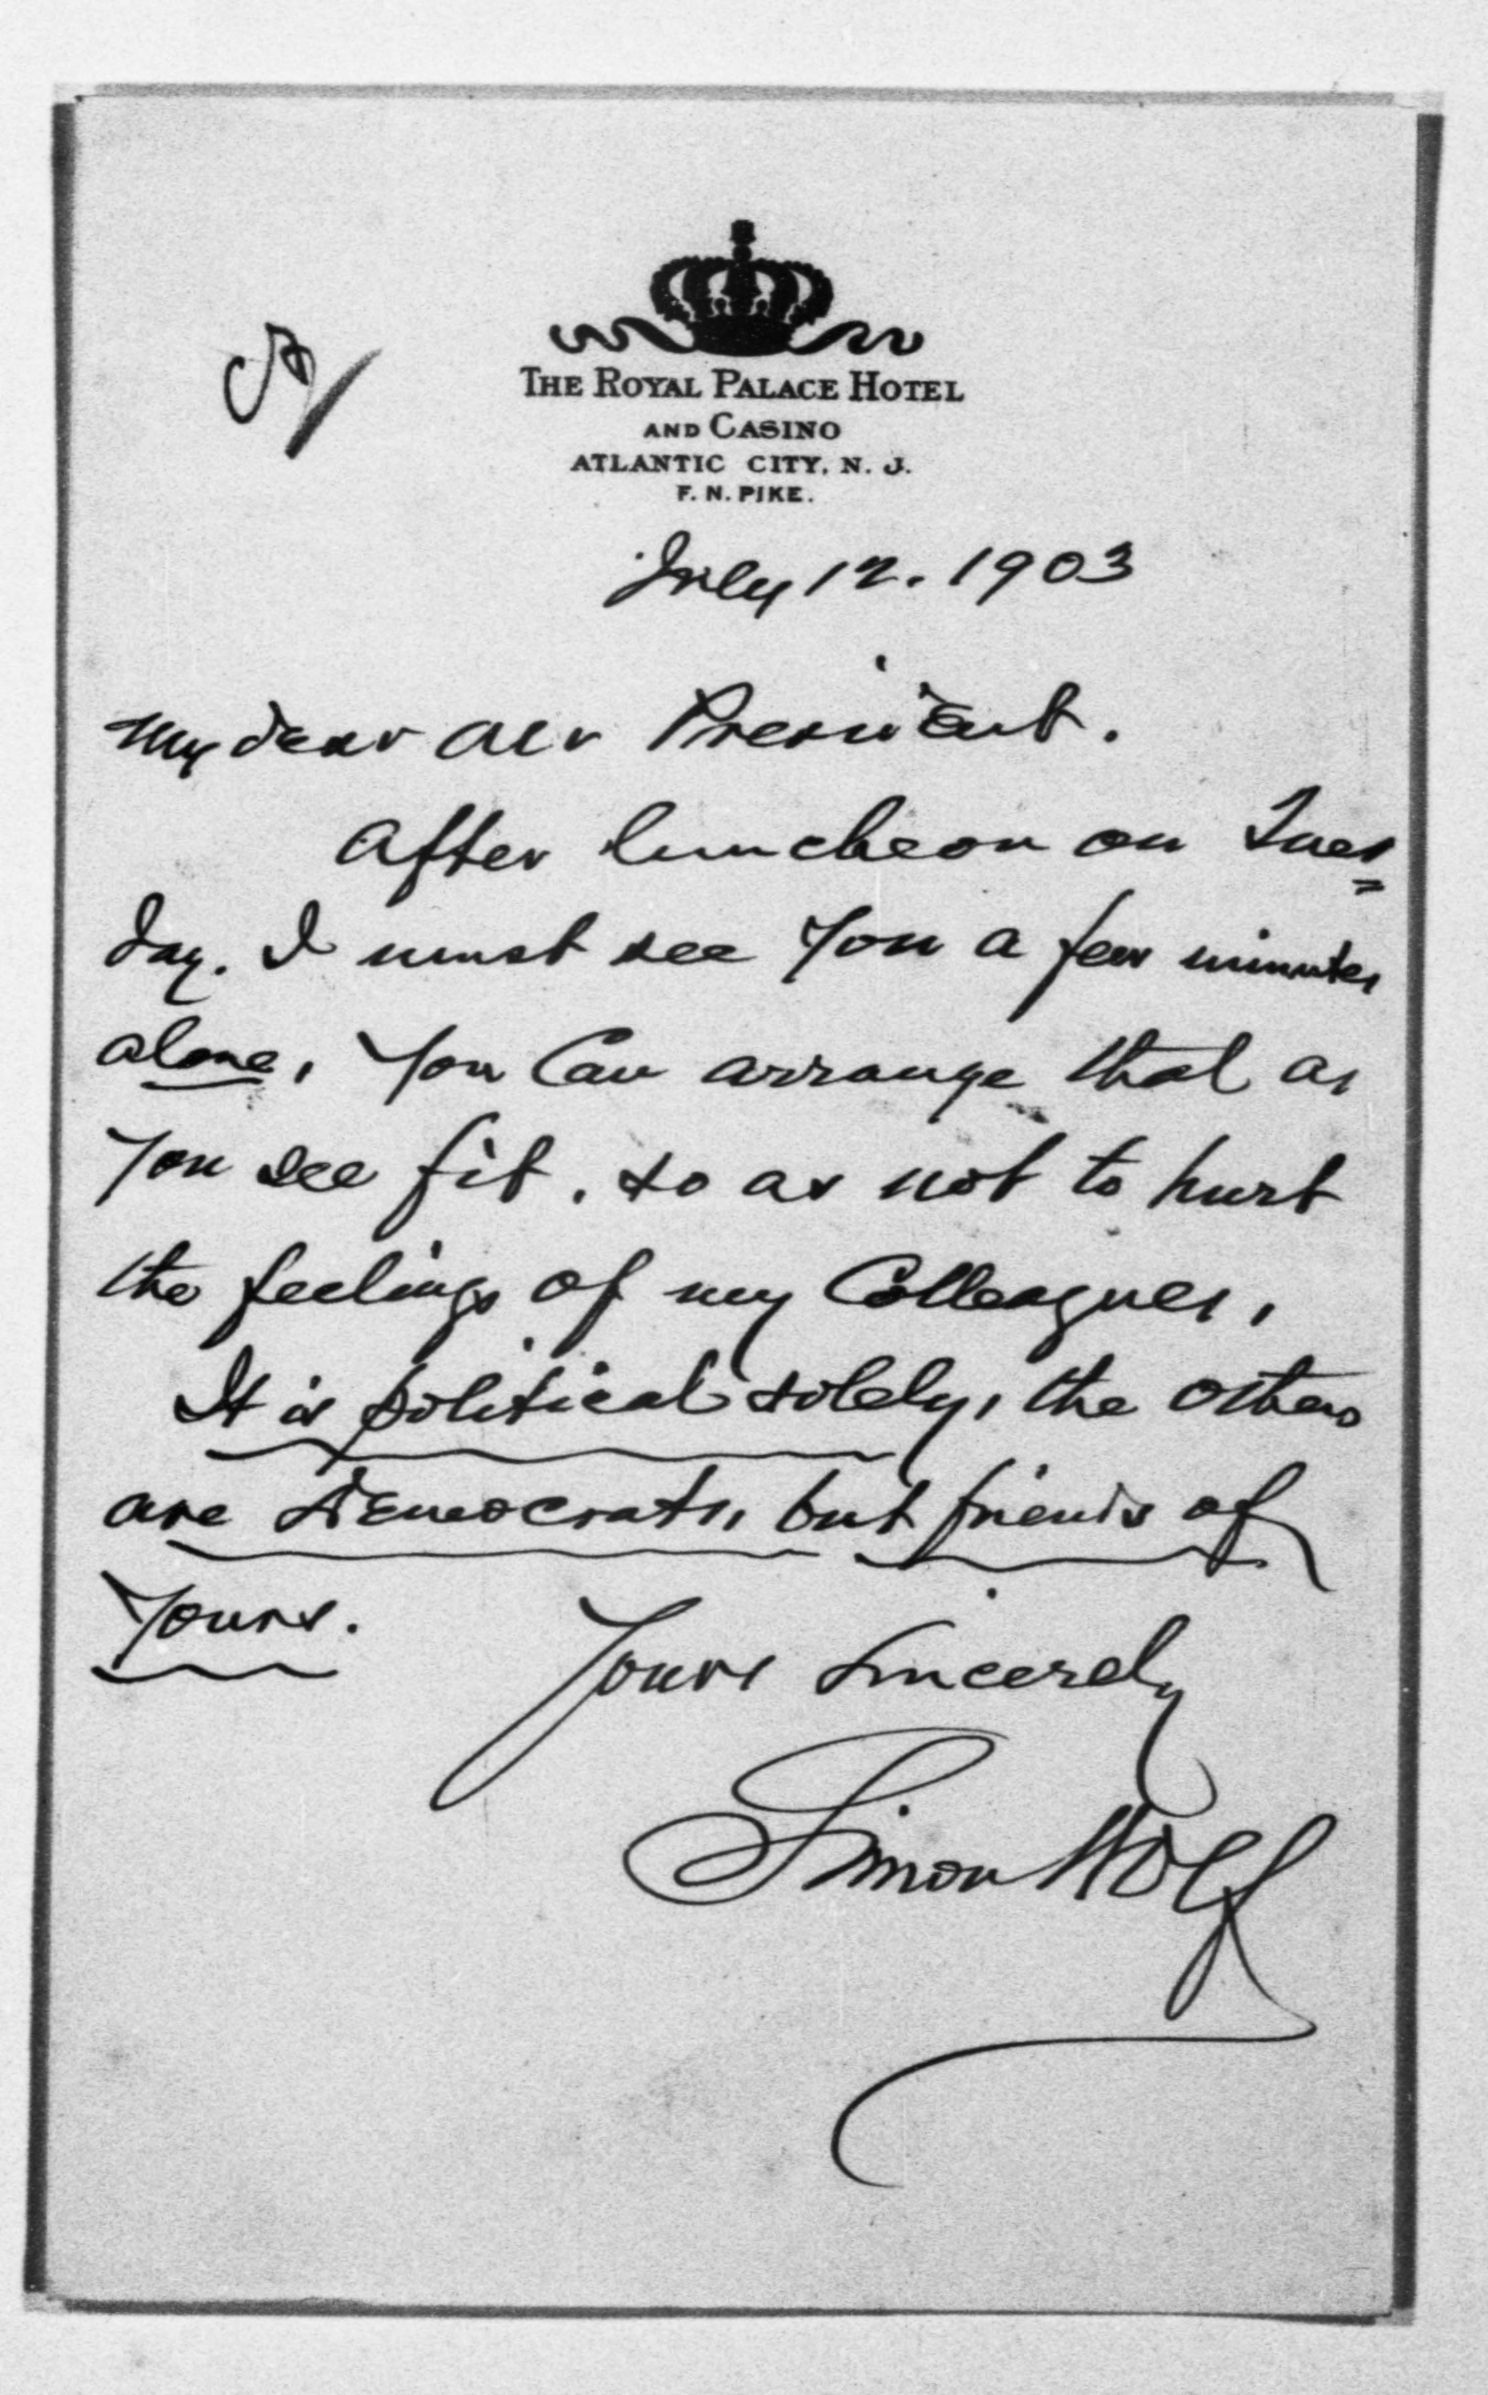 THE ROYAL PALACE HOTEL
AND CASINO
ATLANTIC CITY, N. J.
F. N. PIKE.
July 12. 1903
My dear Mr President.
After luncheon on Tues=
day. I must see you a few minutes
alone, You Can arrange that as
You see fit. so as not to hurt
the feelings of my Colleagues,
It is political solely, the others
are Democrats, but friends of
Yours.
Yours Sincerely
Simon Wolf